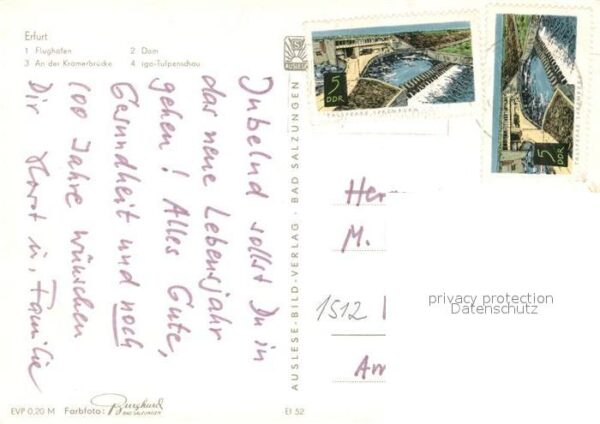 Erfurt
1 Flughafen 2 Dom
3 An der Krämerbrücke 4 iga-Tulpenschau
Jubelnd sollst Du in
das neue Lebensjahr
gehen! Alles Gute,
Gesundheit und noch
100 Jahre wünschen
Dir Horst u. Familie
AUSLESE-BILD-VERLAG · BAD SALZUNGEN
5
DDR
TALSPERRE SPREMBERG
5
DDR
TALSPERRE SPREMBERG
Her
M.
1512
privacy protection
Datenschutz
EVP 0,20 M Farbfoto: Burghard
BAD SALZUNGEN
EI 52